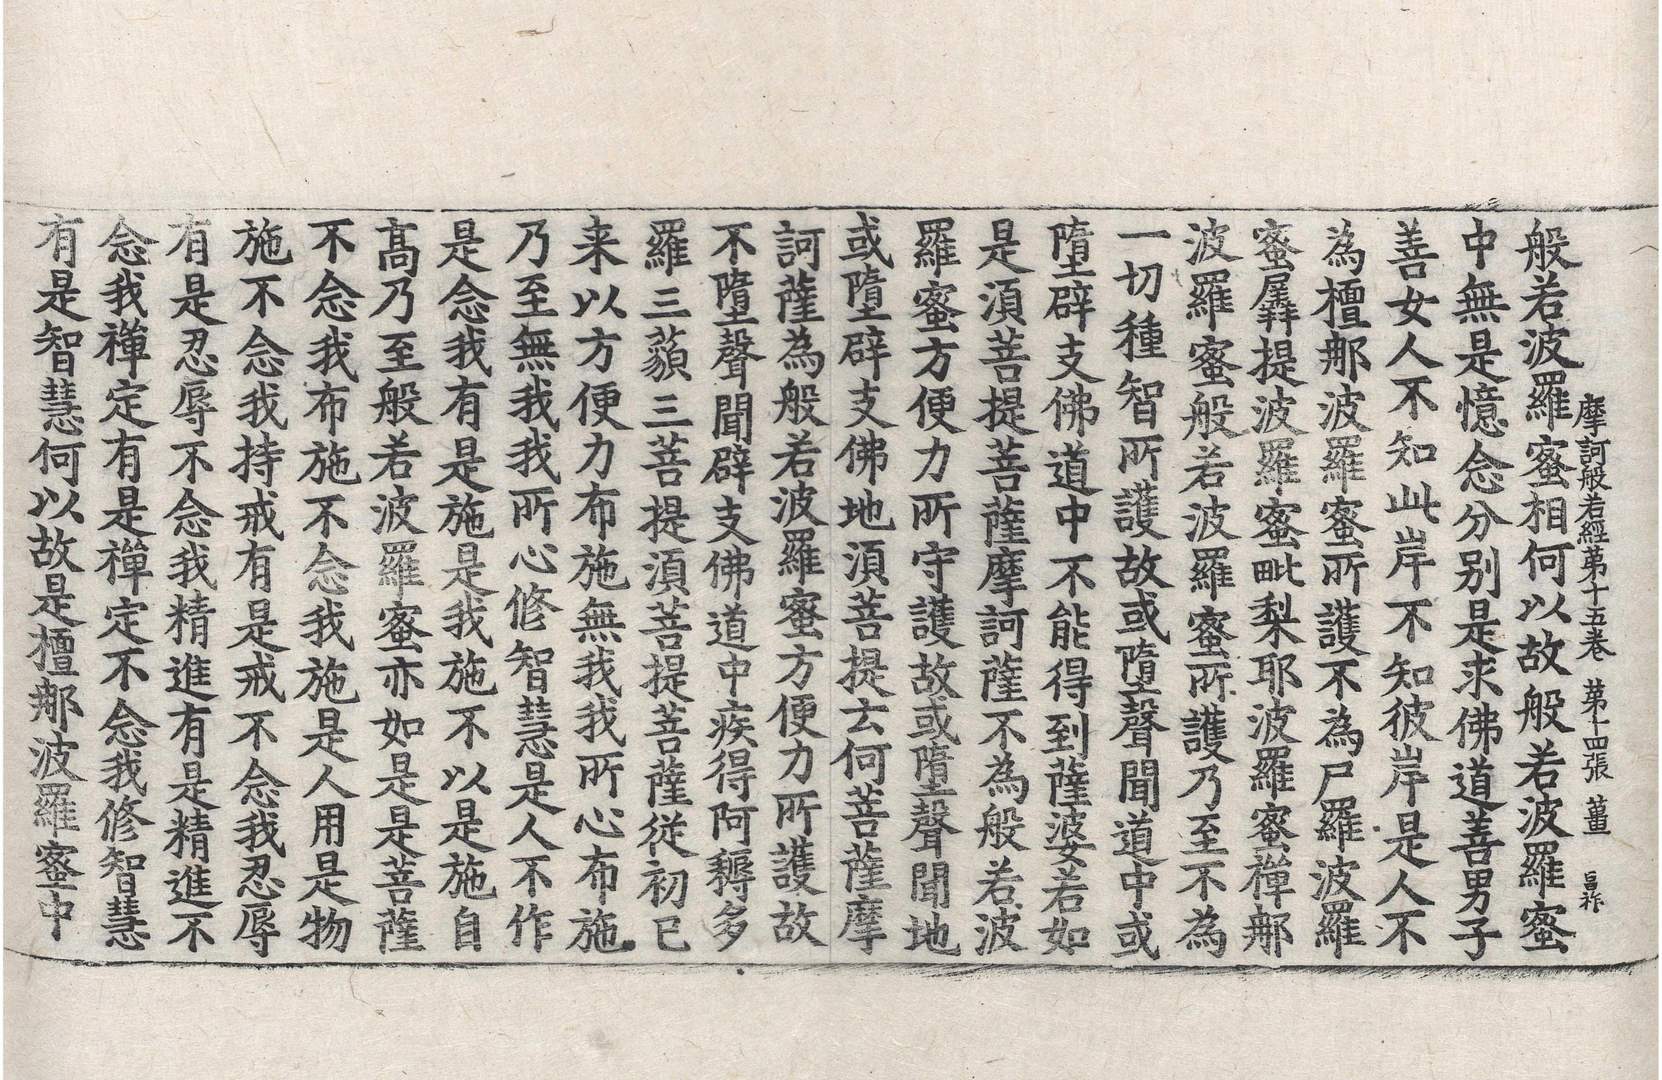 摩訶般若經第十五卷 第十四張 薑
般若波羅蜜相何以故般若波羅蜜
中無是憶念分別是求佛道善男子
善女人不知此岸不知彼岸是人不
為檀那波羅蜜所護不為尸羅波羅
蜜羼提波羅蜜毗梨耶波羅蜜禪那
波羅蜜般若波羅蜜所護乃至不為
一切種智所護故或墮聲聞道中或
墮辟支佛道中不能得到薩婆若如
是湏菩提菩薩摩訶薩不為般若波
羅蜜方便力所守護故或墮聲聞地
或墮辟支佛地湏菩提云何菩薩摩
訶薩為般若波羅蜜方便力所護故
不墮聲聞辟支佛道中疾得阿耨多
羅三藐三菩提湏菩提菩薩從初已
来以方便力布施無我我所心布施
乃至無我我所心修智慧是人不作
是念我有是施是我施不以是施自
髙乃至般若波羅蜜亦如是是菩薩
不念我布施不念我施是人用是物
施不念我持戒有是戒不念我忍辱
有是忍辱不念我精進有是精進不
念我禪定有是禪定不念我修智慧
有是智慧何以故是檀那波羅蜜中